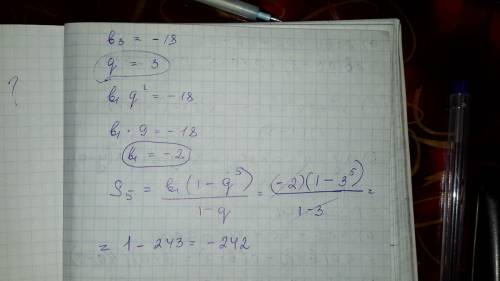 b₃ = -18
q = 3
b₁ q² = -18
b₁ · 9 = -18
b₁ = -2
S₅ = b₁ (1 - q⁵) / 1 - q = (-2)(1 - 3⁵) / 1 - 3 =
= 1 - 243 = -242